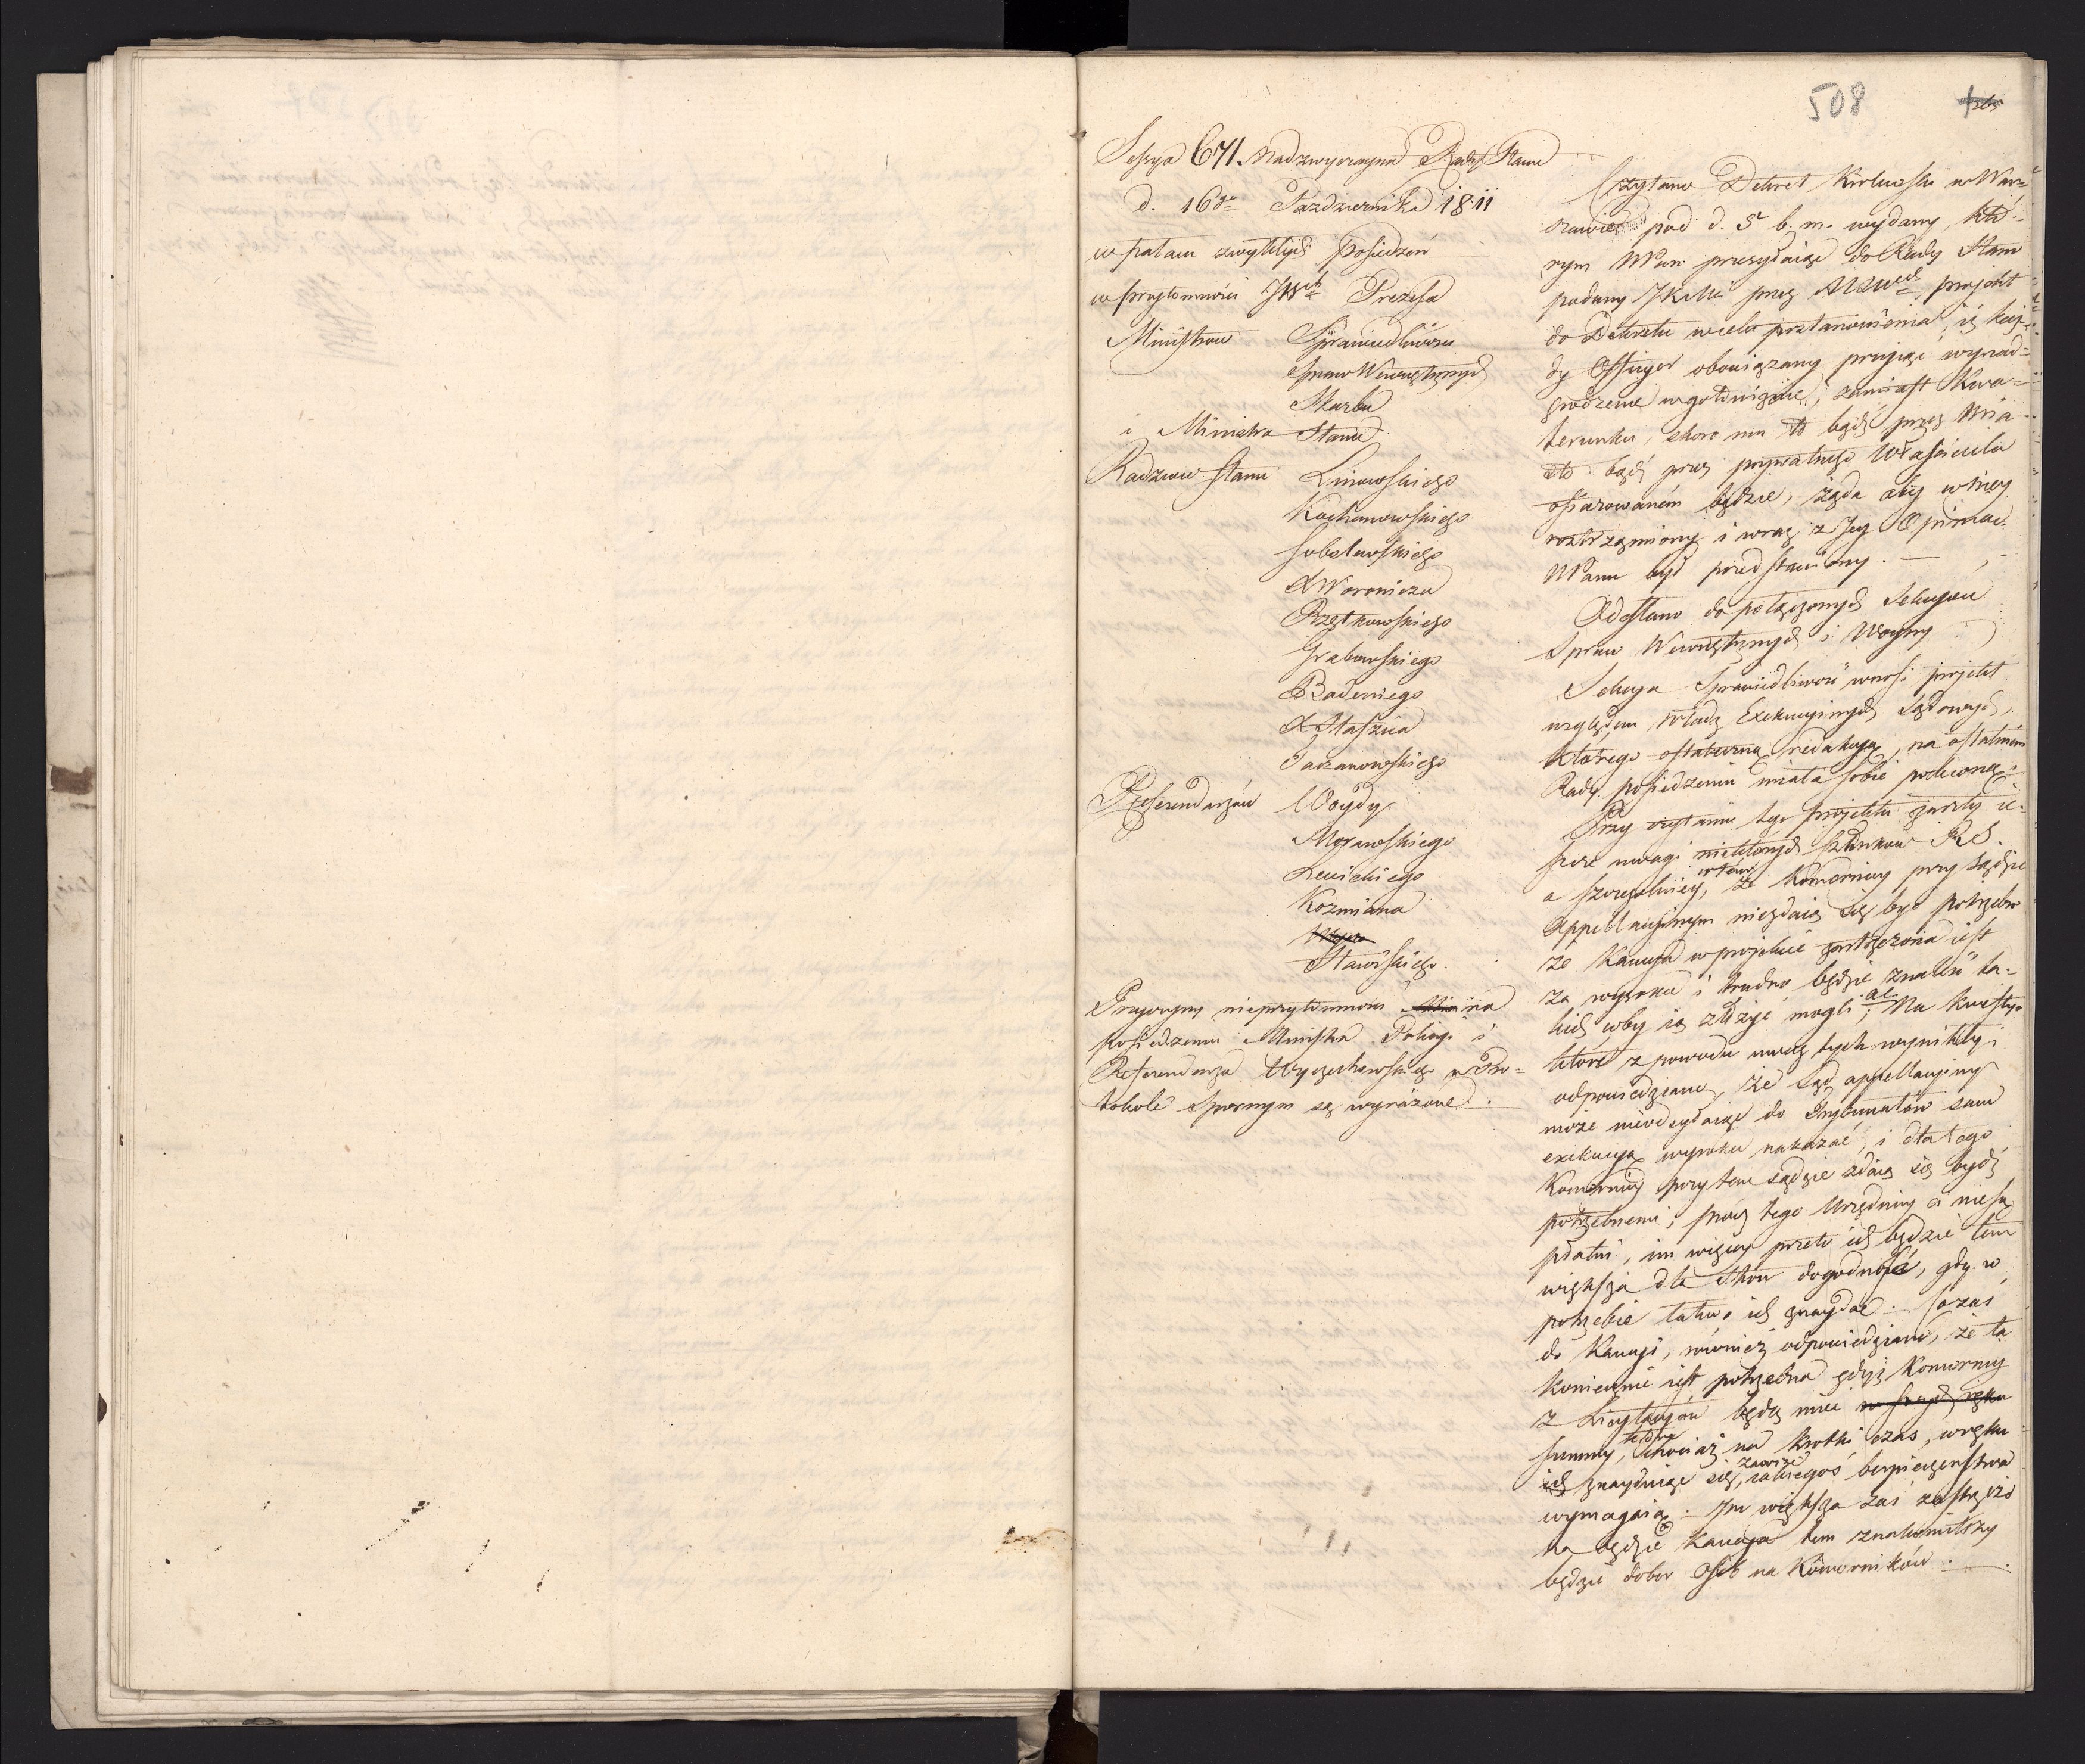 508
Sessya 671. Nadzwyczayna Rady Stanu
d. 16go Pazdziernika 1811
w pałacu zwykłych posiedzeń
w przytomności JWch Prezesa
Ministrow Sprawiedliwości
Spraw Wewnętrznych
Skarbu
i Ministra Stanu
Radzców Stanu Linowskiego
Kochanowskiego
Sobolewskiego
X Woronicza
Rzętkowskiego
Grabowskiego
Badeniego
X Staszica
Tarzanowskiego
Referendarzów Woydy
Morawskiego
Lewickiego
Kozmiana
Stawiskiego.
Przyczyny nieprzytomności na
posiedzeniu Ministra Policyi i
Referendarza Wyczechowskiego w Pro=
tokole spornym są wyrażone.
Czytano Dekret Krolewski w War=
szawie pod d. 5 b. m. wydany, któ=
rym NPan przesyłaiąc do Rady Stanu
podany JKMci przez projekt
do Dekretu wielo postanowienia, iż każ=
dy Officyer obowiązany przyjąć wynad=
grodzenie w gotowiznie, zamiast Kwa=
terunku, skoro mu to bądź przez Mia=
sto bądź przez prywatnego Właściciela
ofiarowanem będzie, żąda aby w niey
roztrząsniony i wraz z Jey Opiniae
NPanu był przedstawiony. —
Odesłano do połączonych Sekcyow
Spraw Wewnętrznych i Woyny
Sekcya Sprawiedliwości wnosi projekt
względem Władz Exekucyinych Sądowych,
którego ostateczną redakcyą, na ostatniem
Rady posiedzeniu miała sobie poleconą.
Przy czytaniu tego projektu zaszły ie=
szcze uwagi niektórych Członków R S.
a szczegolniey, iż Komornicy przy Sądzie
Appellacyinym niezdaią się być potrzebni
że Kaucya w projekcie zastrzeżona iest
za wysoka i trudno będzie znaleść ta=
kich coby ią złożyć mogli; ale Na kwestye
które z powodu uwag tych wynikły
odpowiedziano, że Sąd appellacyiny
może nieodsyłaiąc do Trybunałów sam
exekucyą wyroku nakazać, i dlatego
Komornicy przy tem sądzie zdaią się bydź
potrzebnemi; prócz tego Urzędnicy ci nie są
płatni, im więcey przeto ich będzie tem
większa dla Stron dogodność, gdy w
potrzebie łatwo ich znaydą. Cozaś
do Kaucyi, również odpowiedziano, że ta
koniecznie iest potrzebna gdyż Komornicy
z Licytacyow będą mieć
summy, które chociaż na krotki czas, w ręku
ich znayduiąc się, zawsze iakiegoś bezpieczeństwa
wymagaią. Im większa zaś zastrzeżo
na będzie Kaucya tem znakomitszy
będzie dobor Osób na Komorników.